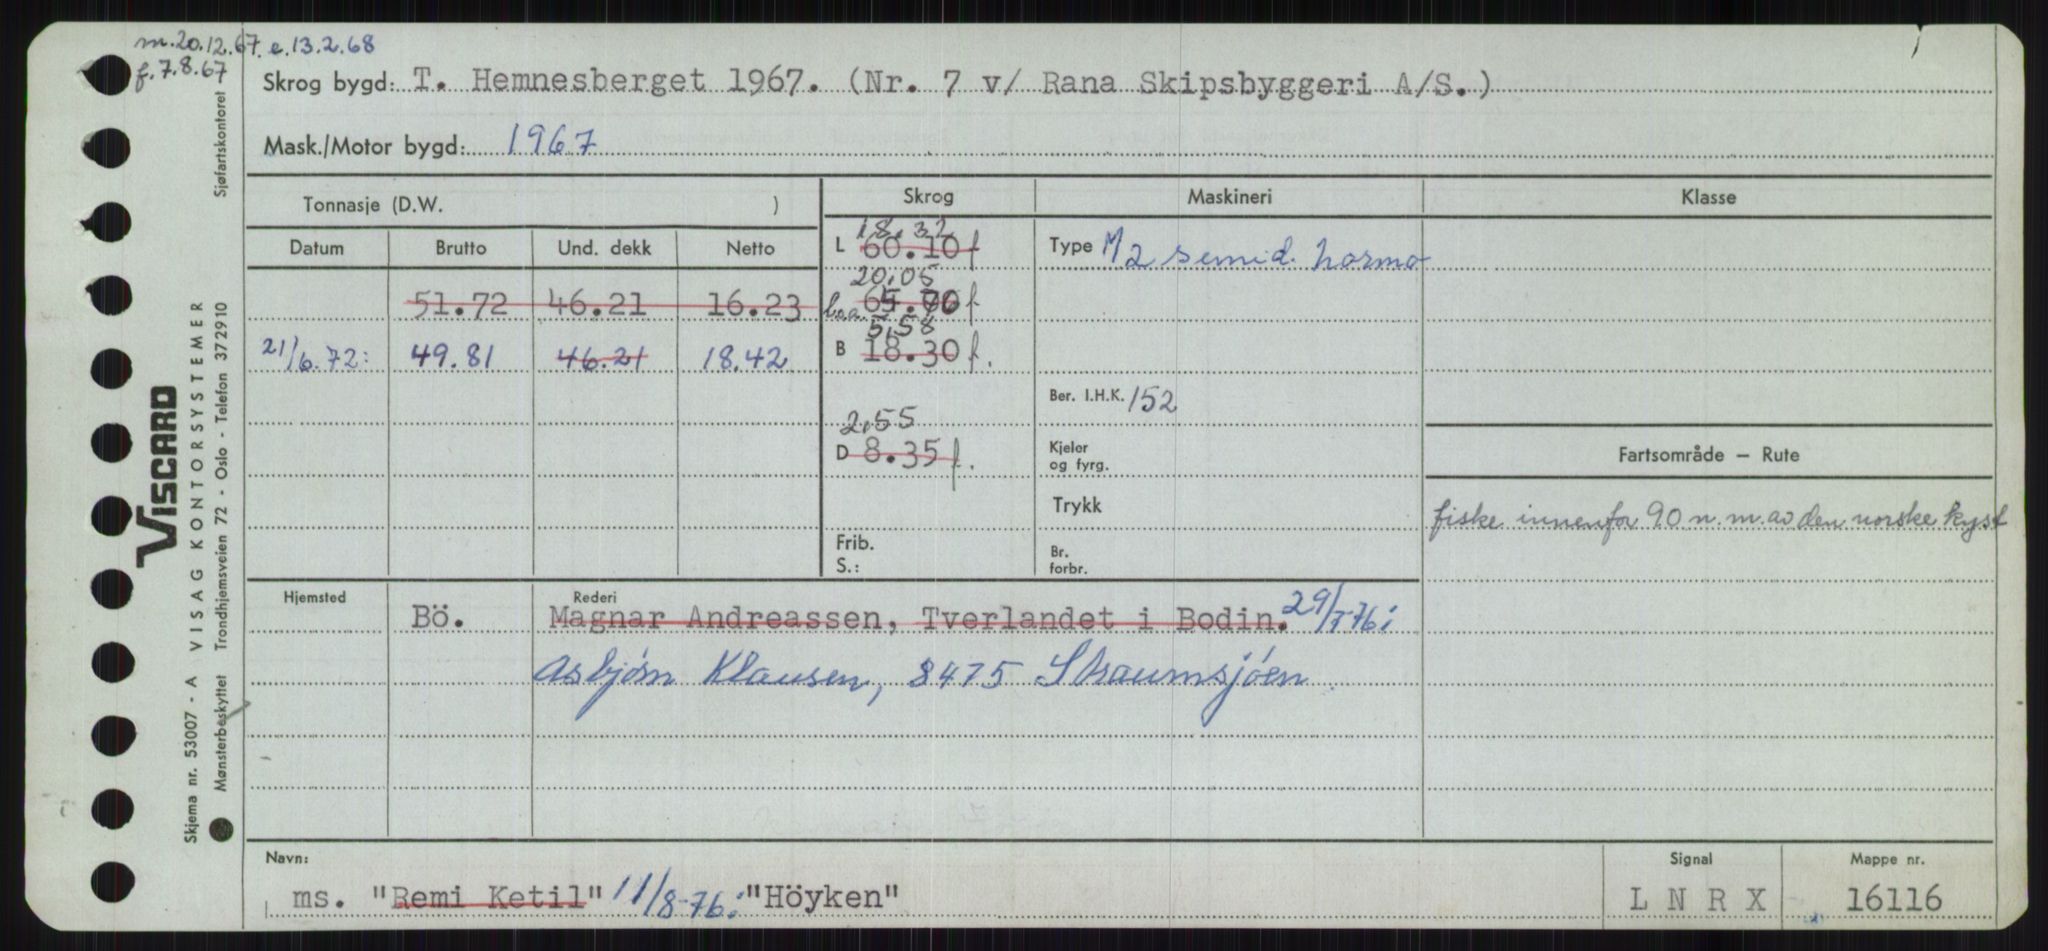 m.20.12.67. e.13.2.68
f.7.8.67
Skrog bygd: T. Hemnesberget 1967. (Nr. 7 v/ Rana Skipsbyggeri A/S.)
Mask./Motor bygd: 1967
Tonnasje (D.W. )
Skrog
Maskineri
Klasse
Datum Brutto Und. dekk Netto
18.32
L 60.10 f
Type M 2 semid. Normo
20,05
51.72 46.21 16.23
loa f
5,58
21/6.72: 49.81 46.21 18.42
B 18.30 f.
Ber. I.H.K. 152
2,55
D 8.35 f.
Kjeler
og fyrg.
Fartsområde – Rute
Trykk
fiske innenfor 90 n.m. av den norske kyst
Frib.
S.:
Br.
forbr.
Hjemsted
Rederi
Bö. Magnar Andreassen, Tverlandet i Bodin. 29/7-76:
Asbjörn Klausen, 8475 Straumsjöen
Navn:
ms. "Remi Ketil" 11/8-76: "Höyken"
Signal
L N R X
Mappe nr.
16116
VISCARD
Skjema nr. 53007 - A VISAG KONTORSYSTEMER
Mønsterbeskyttet Trondhjemsveien 72 - Oslo - Telefon 372910 Sjøfartskontoret